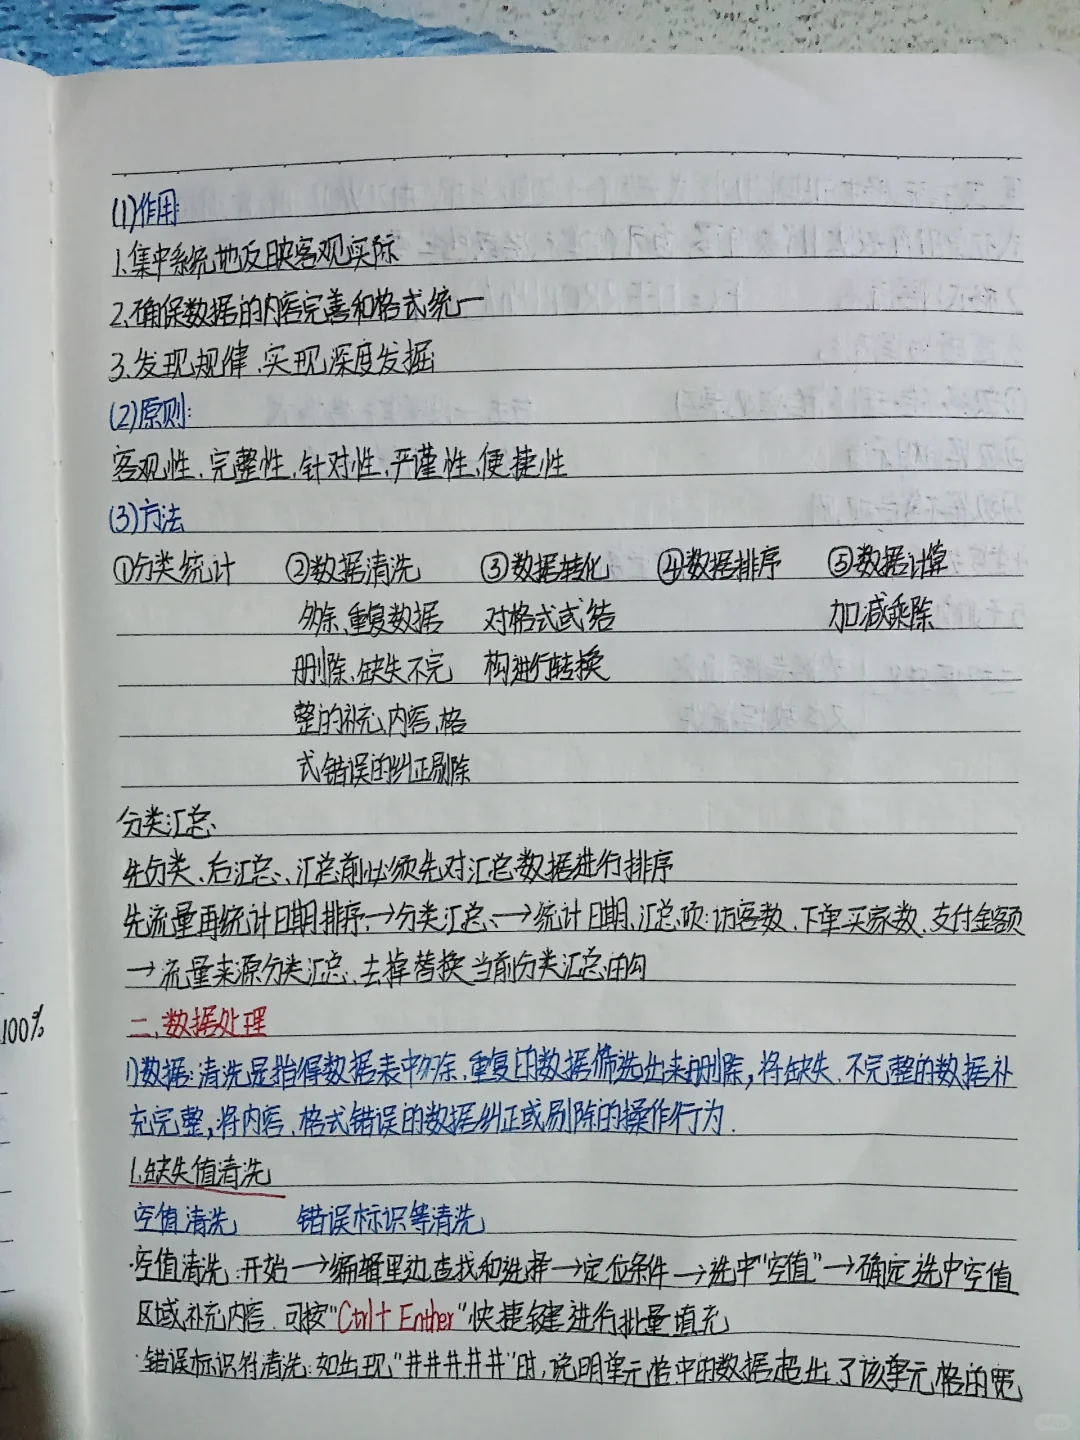 (1)作用:
1.集中系统地反映客观实际
2.确保数据的内容完善和格式统一
3.发现规律、实现深度发掘
(2)原则:
客观性、完整性、针对性、严谨性、便捷性
(3)方法
①分类统计 ②数据清洗 ③数据转化 ④数据排序 ⑤数据计算
多除、重复数据 对格式或结 加减乘除
删除、缺失不完 构进行转换
整的补充、内容、格
式错误的纠正剔除
分类汇总、
先分类、后汇总、汇总前必须先对汇总数据进行排序
先流量再统计日期排序→分类汇总、→统计日期、汇总项:访客数、下单买家数、支付金额
→流量来源分类汇总、去掉替换当前分类汇总的勾
100%
二、数据处理
1)数据:清洗是指得数据表中多除、重复的数据筛选出来删除,将缺失、不完整的数据补
充完整,将内容、格式错误的数据纠正或剔除的操作行为.
1.缺失值清洗
空值清洗 错误标识等清洗
·空值清洗:开始→编辑里边查找和选择→定位条件→选中"空值"→确定选中空值
区域补充内容、可按"Ctrl+Enther"快捷键进行批量填充
·错误标识符清洗:如出现"#####"时,说明单元格中的数据超出了该单元格的宽